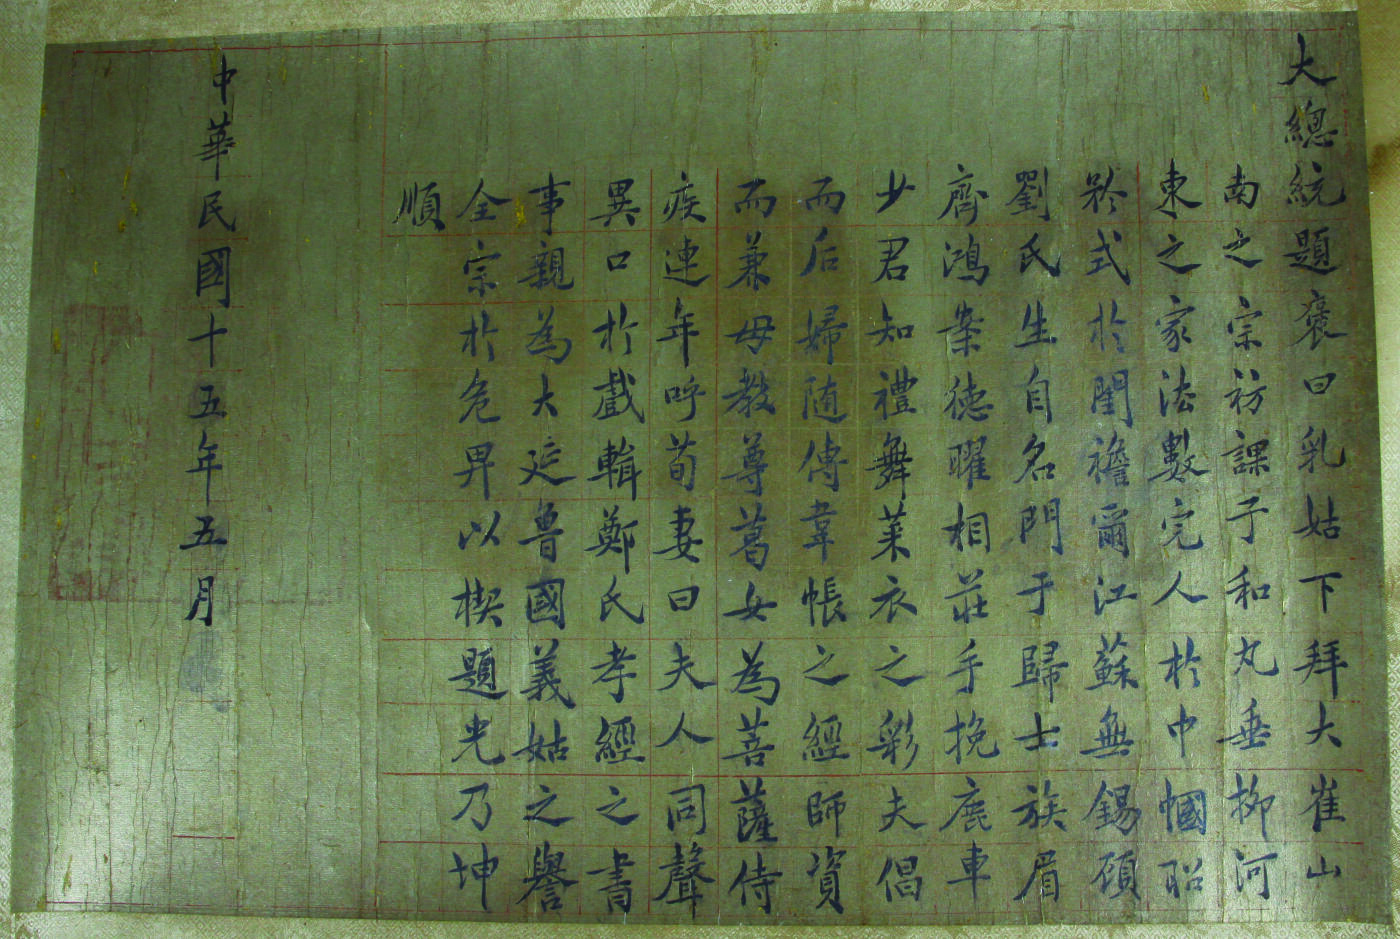 大總統題褒曰乳姑下拜大崔山
南之宗祊課子和丸垂柳河
東之家法數完人於中幗昭
矜式於閨襜爾江蘇無錫碩
劉氏生自名門于歸士族眉
齊鴻案德曜相莊手挽鹿車
少君知禮舞萊衣之彩夫倡
而后婦随傳韋帳之經師資
而兼母教尊葛女為菩薩侍
疾連年呼荀妻曰夫人同聲
異口於戲輯鄭氏孝經之書
事親為大延魯國義姑之譽
全宗於危畀以楔題光乃坤
順
中華民國十五年五月